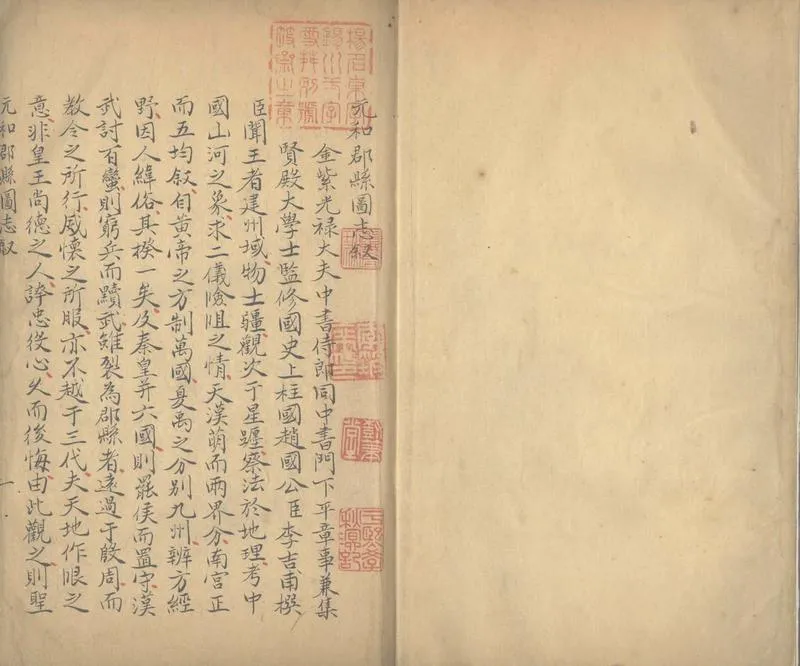 元和郡縣圖志叙
金紫光禄大夫中書侍郎同中書門下平章事兼集
賢殿大學士監修國史上柱國趙國公臣李吉甫撰
臣聞王者建州域物土疆觀次于星躔察法於地理考中
國山河之象求二儀險阻之情天漢萌而兩界分南宮正
而五均叙自黄帝之方制萬國夏禹之分別九州辨方經
野因人緯俗其揆一矣及秦皇并六國則罷侯而置守漢
武討百蠻則窮兵而黷武雖裂為郡縣者遠過于殷周而
教令之所行威懷之所服亦不越于三代夫天地作限之
意非皇王尚德之人誶忠役心久而後悔由此觀之則聖
元和郡縣圖志叙 一